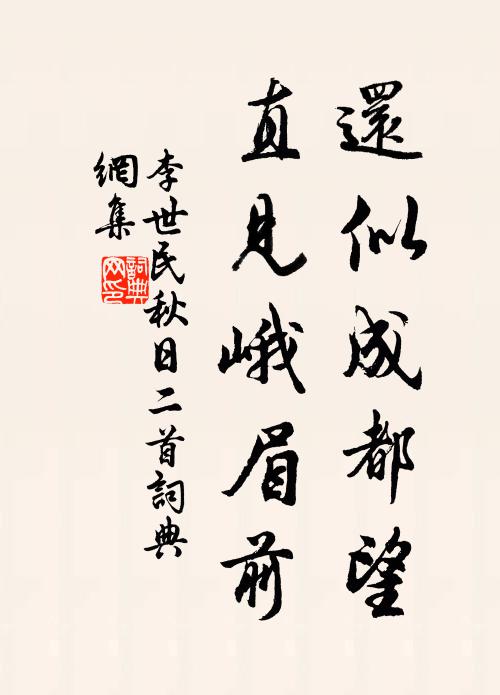 還似成都望
直見峨眉前
李世民秋日二首詞典
網集
詞典網印